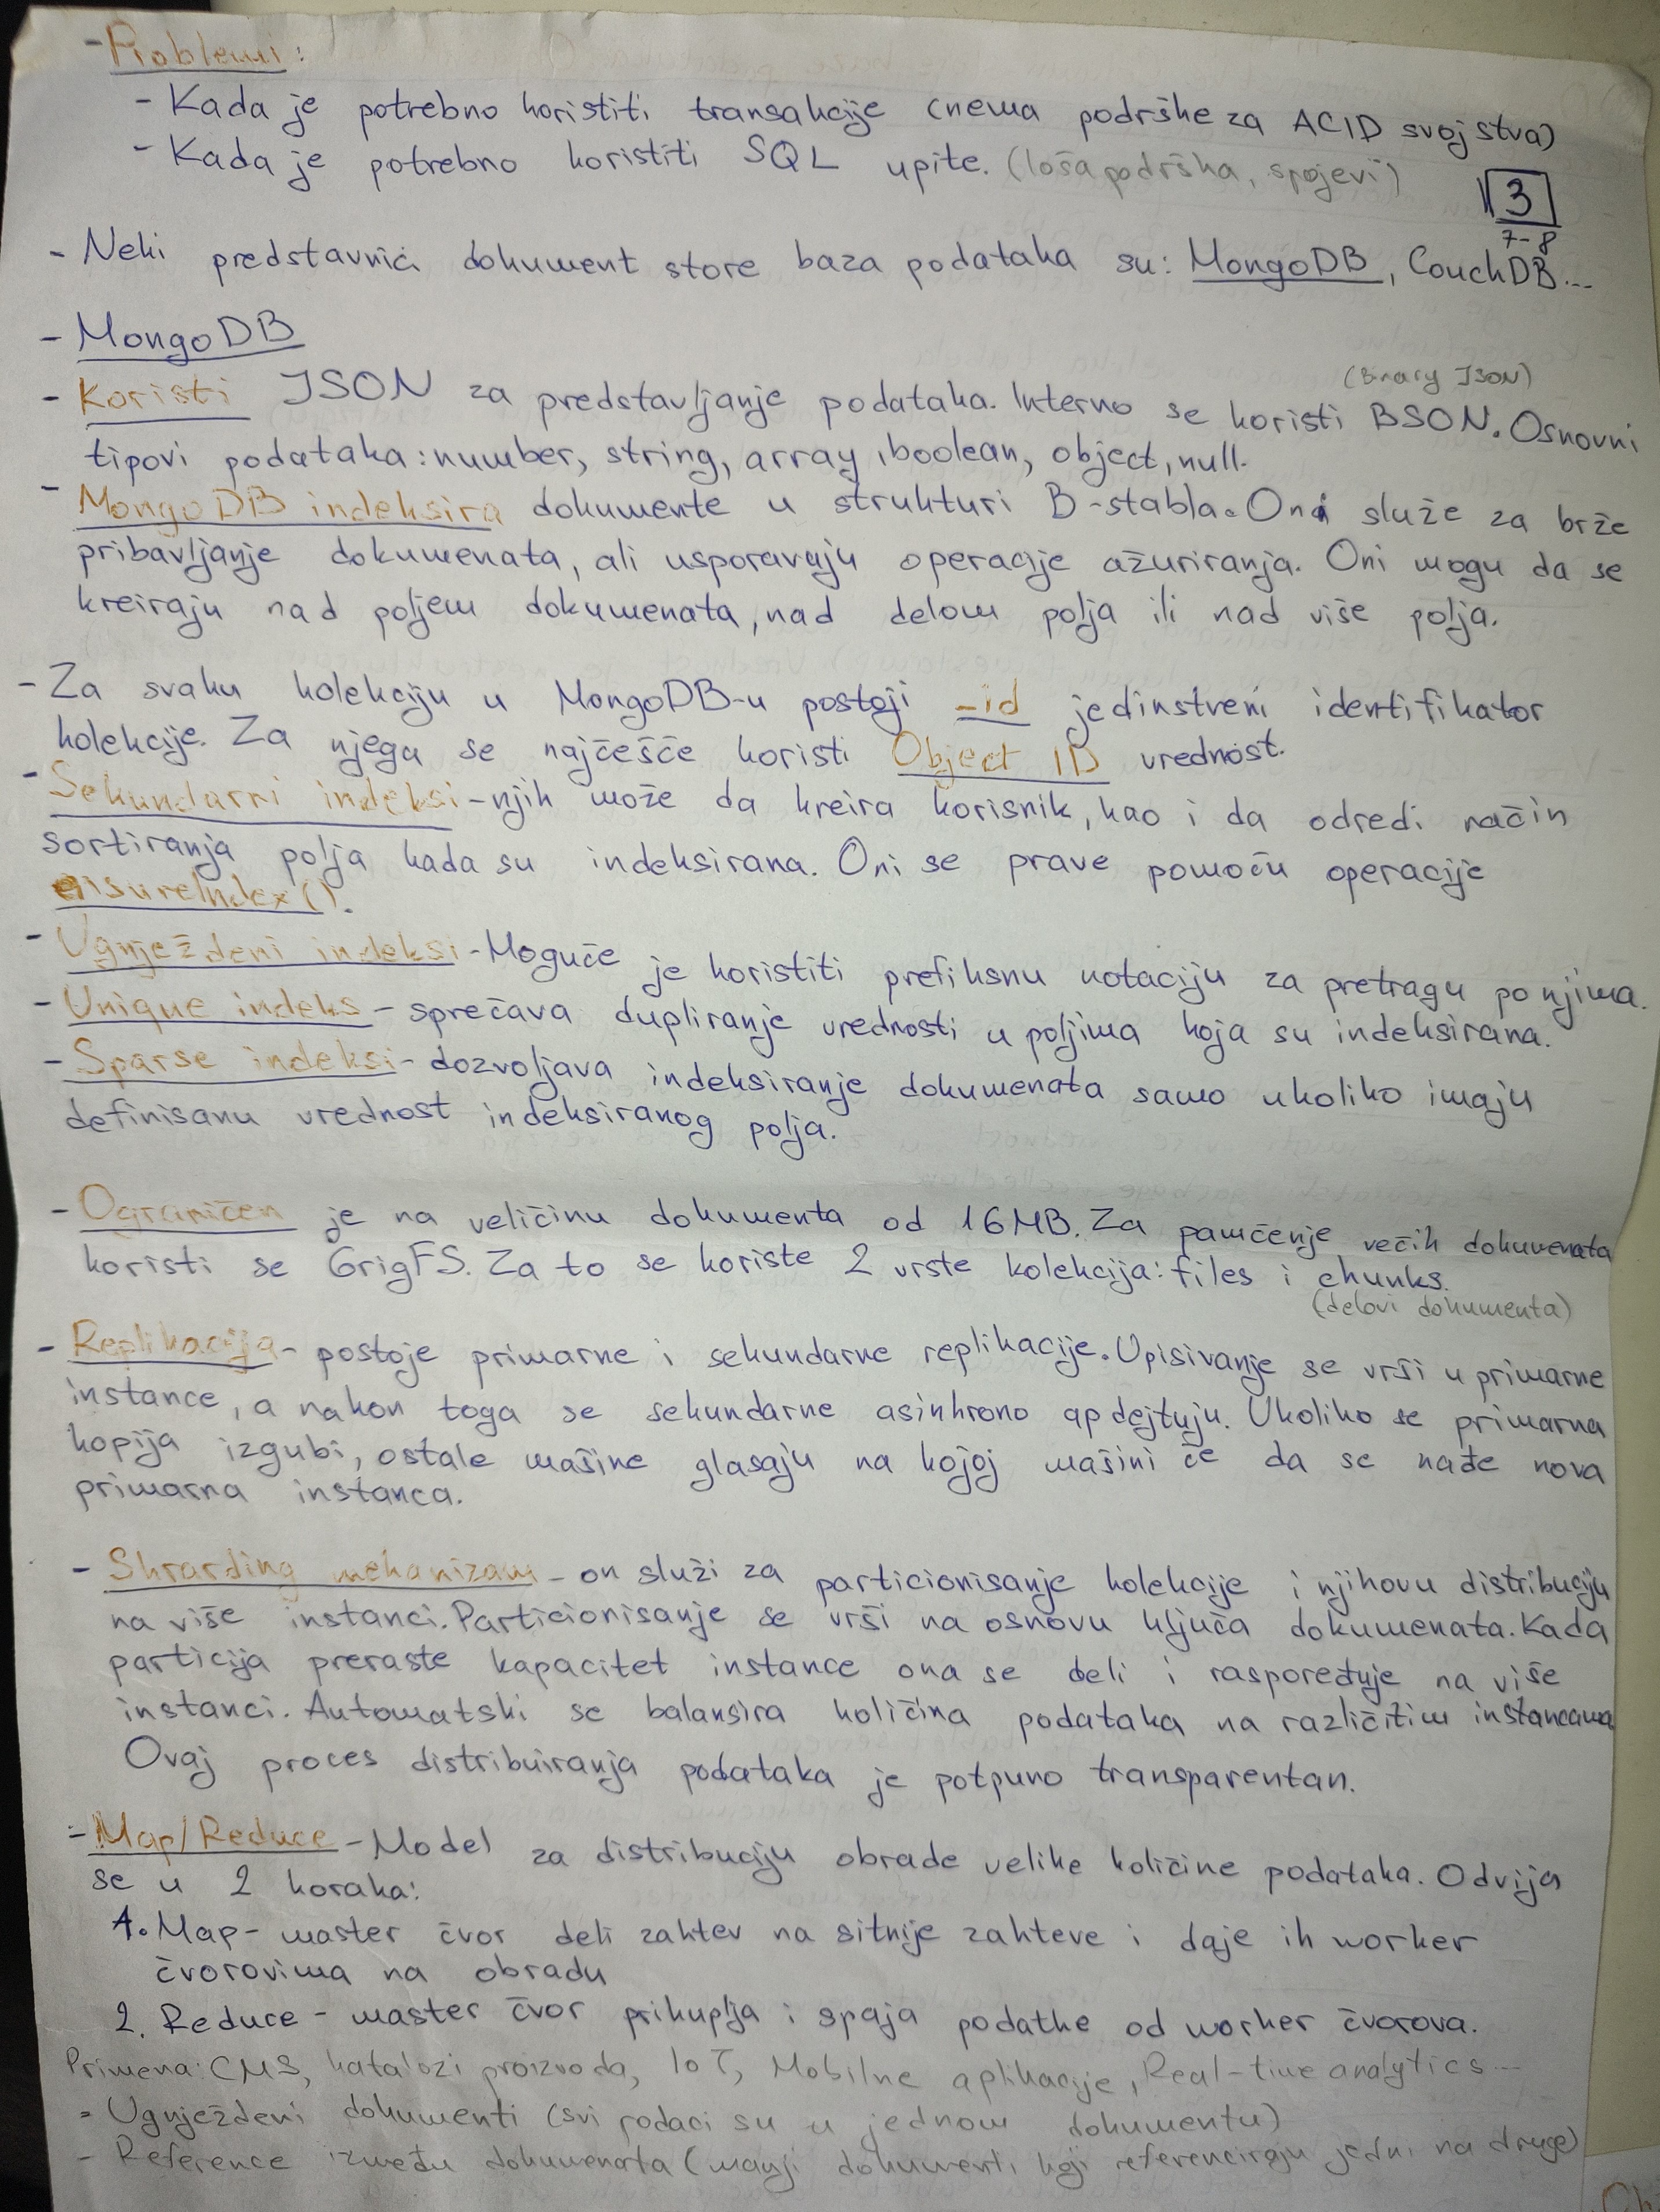 - Problemi:
- Kada je potrebno koristiti transakcije (nema podrške za ACID svojstva)
- Kada je potrebno koristiti SQL upite. (loša podrška, spojevi)
3
7-8
- Neki predstavnici dokument store baza podataka su: MongoDB, CouchDB...
- MongoDB
(Binary JSON)
- Koristi JSON za predstavljanje podataka. Interno se koristi BSON. Osnovni
tipovi podataka: number, string, array, boolean, object, null.
- MongoDB indeksira dokumente u strukturi B-stabla. Oni služe za brže
pribavljanje dokumenata, ali usporavaju operacije ažuriranja. Oni mogu da se
kreiraju nad poljem dokumenata, nad delom polja ili nad više polja.
- Za svaku kolekciju u MongoDB-u postoji _id jedinstveni identifikator
kolekcije. Za njega se najčešće koristi Object ID vrednost.
- Sekundarni indeksi - njih može da kreira korisnik, kao i da odredi način
sortiranja polja kada su indeksirana. Oni se prave pomoću operacije
ensureIndex().
- Ugnježdeni indeksi - Moguće je koristiti prefiksnu notaciju za pretragu po njima.
- Unique indeks - sprečava dupliranje vrednosti u poljima koja su indeksirana.
- Sparse indeksi - dozvoljava indeksiranje dokumenata samo ukoliko imaju
definisanu vrednost indeksiranog polja.
- Ograničen je na veličinu dokumenta od 16MB. Za pamćenje većih dokumenata
koristi se GrigFS. Za to se koriste 2 vrste kolekcija: files i chunks.
(delovi dokumenta)
- Replikacija - postoje primarne i sekundarne replikacije. Upisivanje se vrši u primarne
instance, a nakon toga se sekundarne asinhrono apdejtuju. Ukoliko se primarna
kopija izgubi, ostale mašine glasaju na kojoj mašini će da se nađe nova
primarna instanca.
- Shrarding mehanizam - on služi za particionisanje kolekcije i njihovu distribuciju
na više instanci. Particionisanje se vrši na osnovu ključa dokumenata. Kada
particija preraste kapacitet instance ona se deli i raspoređuje na više
instanci. Automatski se balansira količina podataka na različitim instancama
Ovaj proces distribuiranja podataka je potpuno transparentan.
- Map/Reduce - Model za distribuciju obrade velike količine podataka. Odvija
se u 2 koraka:
1. Map - master čvor deli zahtev na sitnije zahteve i daje ih worker
čvorovima na obradu
2. Reduce - master čvor prikuplja i spaja podatke od worker čvorova.
Primena: CMS, katalozi proizvoda, IoT, Mobilne aplikacije, Real-time analytics...
- Ugnježdeni dokumenti (svi podaci su u jednom dokumentu)
- Reference između dokumenata (manji dokumenti koji referenciraju jedni na druge)